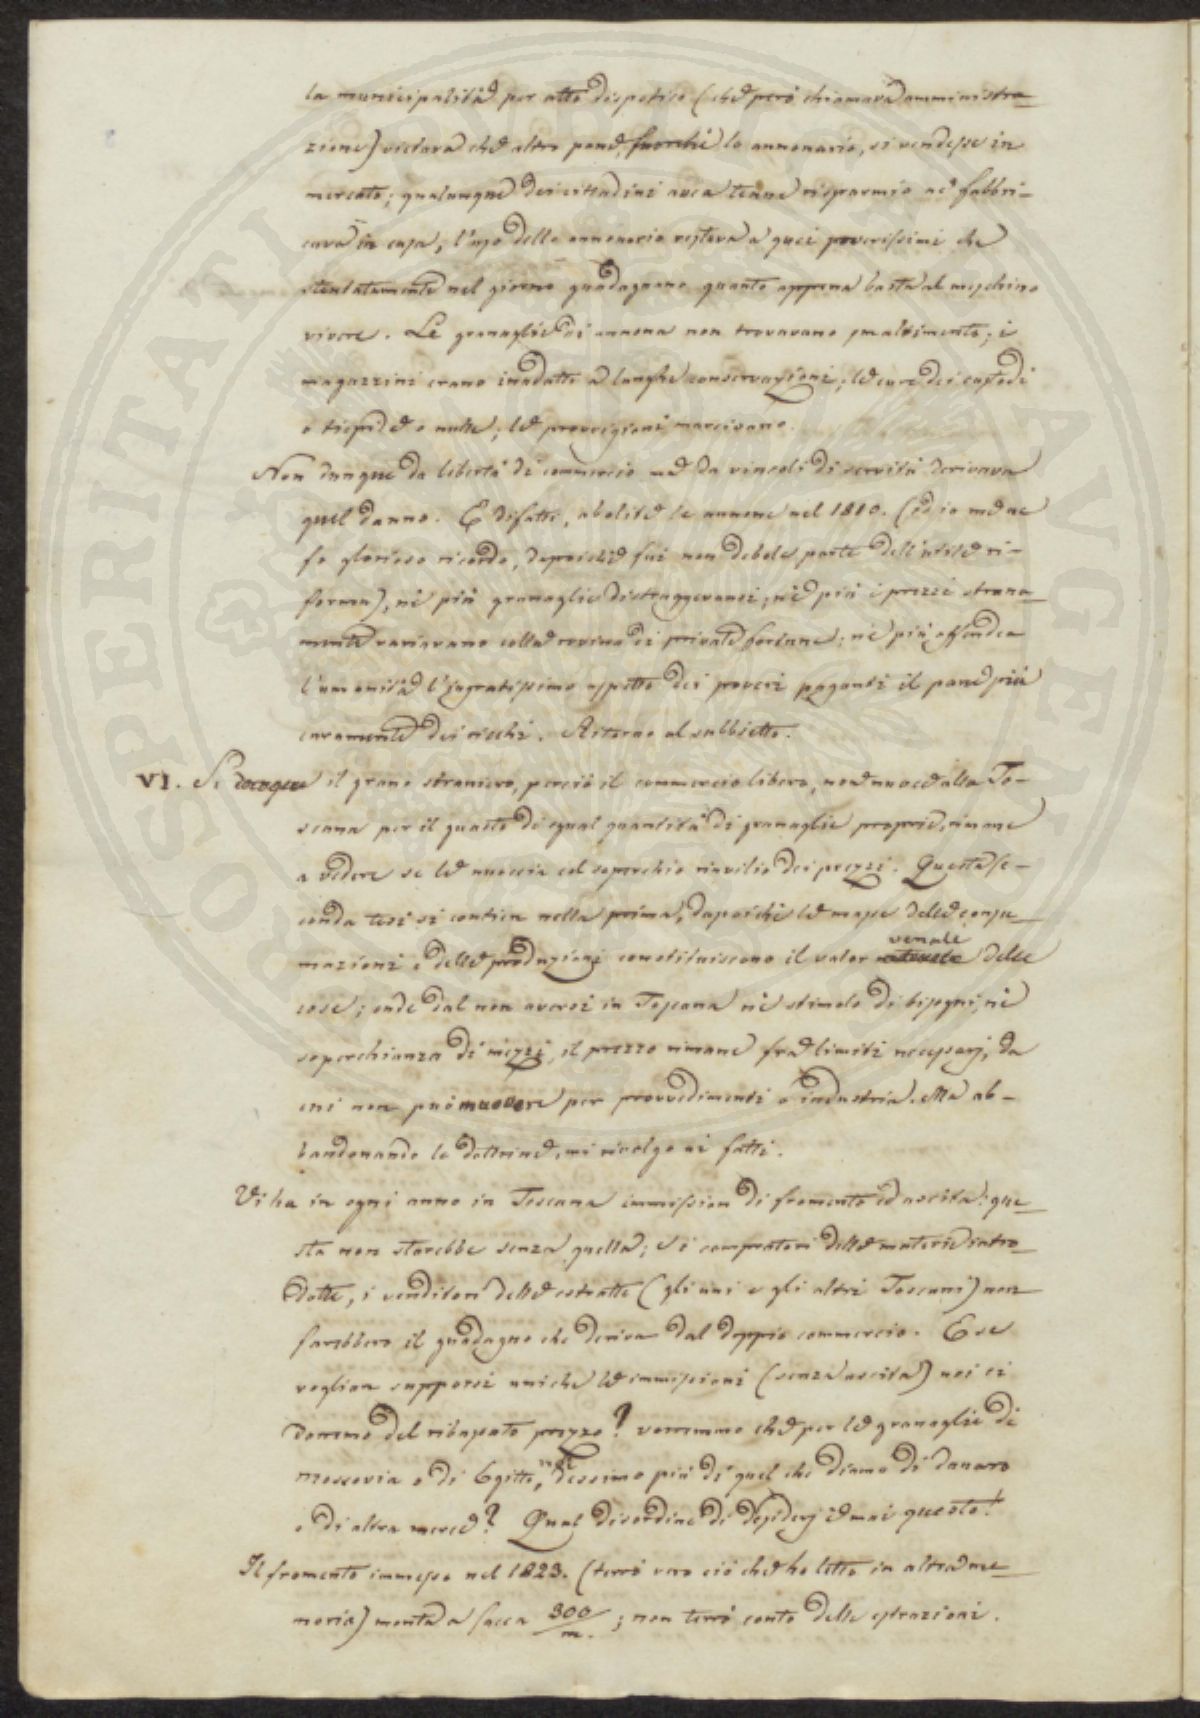 la municipalità per atto dispotico (che però chiamava amministra-
zione) vietava che altro pane, fuorchè lo annonario, si vendesse in
mercato; qualunque dei cittadini avea tenue risparmio ne fabbri-
cava in casa, l'uso dello annonario restava a quei poverissimi che
stentatamente nel giorno guadagnano quanto appena basta al meschino
vivere. Le granaglie di annona non trovavano smaltimento; i
magazzini erano inadatti a lunghe conservazioni; le cure dei custodi
o tiepide o nulle; le provvigioni marcivano.
Non dunque da libertà di commercio ma da vincoli di servitù derivava
quel danno. E difatti, abolite le annone nel 1810. (ed io me ne
fo glorioso ricordo, dapoichè fui non debole parte dell'utile ri-
forma), nè più granaglie distruggevansi, nè più i prezzi strana-
mente variavano colla rovina di private fortune; nè più offendea
l'umanità l'ingratissimo aspetto dei poveri paganti il pane più
caramente dei ricchi. Ritorno al subbietto.
VI. Se dunque il grano straniero, perciò il commercio libero, non nuoce alla To-
scana per il guasto di egual quantità di granaglie proprie, rimane
a vedere se le nuoccia col soperchio rinvilio dei prezzi. Questa se-
conda tesi si contien nella prima, dapoichè le masse delle consu-
mazioni e delle produzioni constituiscono il valor venale delle
cose; onde dal non aversi in Toscana nè stimolo di bisogni, nè
soperchianza di mezzi, il prezzo rimane fra limiti necessarj, da
cui non può muovere per provvedimenti o industria. Ma ab-
bandonando le dottrine, mi rivolgo ai fatti.
Vi ha in ogni anno in Toscana immission di fromento ed uscita: que-
sta non starebbe senza quella; e i compratori delle materie intro-
dotte, i venditori delle estratte (gli uni e gli altri Toscani) non
farebbero il guadagno che deriva dal doppio commercio. E se
voglion supporsi uniche le immissioni (senza uscita) noi ci
dorremo del ribassato prezzo? vorremmo che per le granaglie di
Moscovia o di Egitto, dessimo più di quel che diamo di danaro
o di altra merce? Qual disordine di desiderj è mai questo!
Il fromento immesso nel 1823. (terrò vero ciò che ho letto in altra me-
moria) monta a sacca 300/m. ; non terrò conto delle estrazioni.